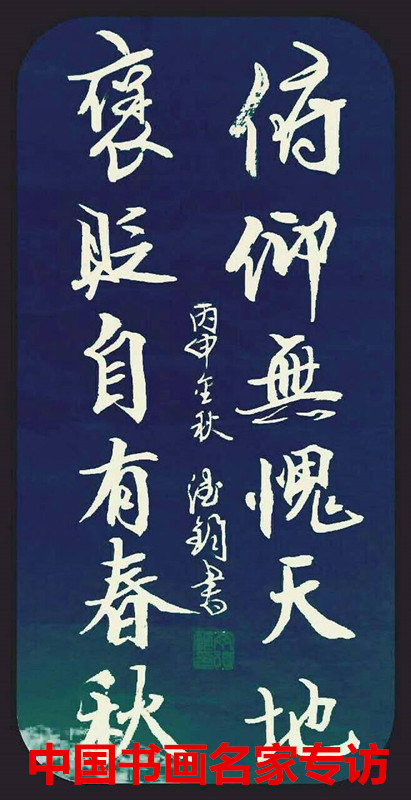 俯仰無愧天地
褒貶自有春秋
丙申金秋 德鈞書
中国书画名家专访